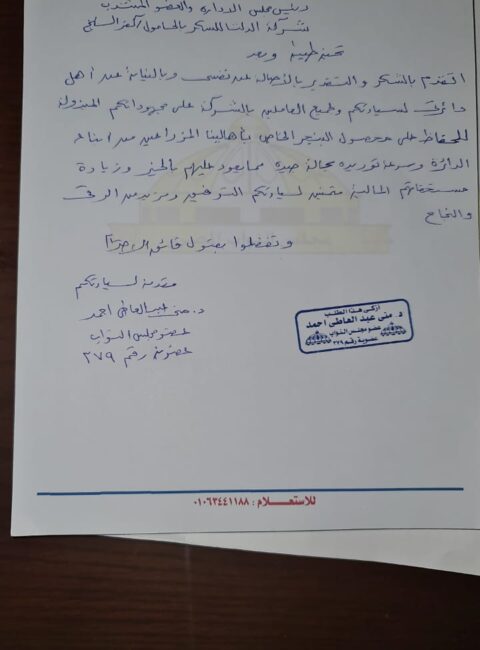 رئيس مجلس الإدارة والعضو المنتدب
شركة الدلتا للسكر بالحامول / كفر الشيخ
تحية طيبة وبعد
أتقدم بالشكر والتقدير بالأصالة عن نفسى وبالنيابة عن أهل
دائرتى لسيادتكم وجميع العاملين بالشركة على مجهوداتكم المبذولة
للحفاظ على محصول البنجر الخاص بأهالينا المزارعين من أبناء
الدائرة وسرعة توريده بحالة جيدة مما يعود عليهم بالخير وزيادة
مستحقاتهم المالية متمنين لسيادتكم التوفيق ومزيد من الرقى
والنجاح
وتفضلوا بقبول فائق الاحترام
مقدمة لسيادتكم
د. منى عبد العاطى احمد
عضو مجلس النواب
عضوية رقم ٢٧٩
أزكى هذا الطلب
د. منى عبد العاطى احمد
عضو مجلس النواب
عضوية رقم ٢٧٩
للاستعلام : ٠١٠٦٣٤٤١١٨٨